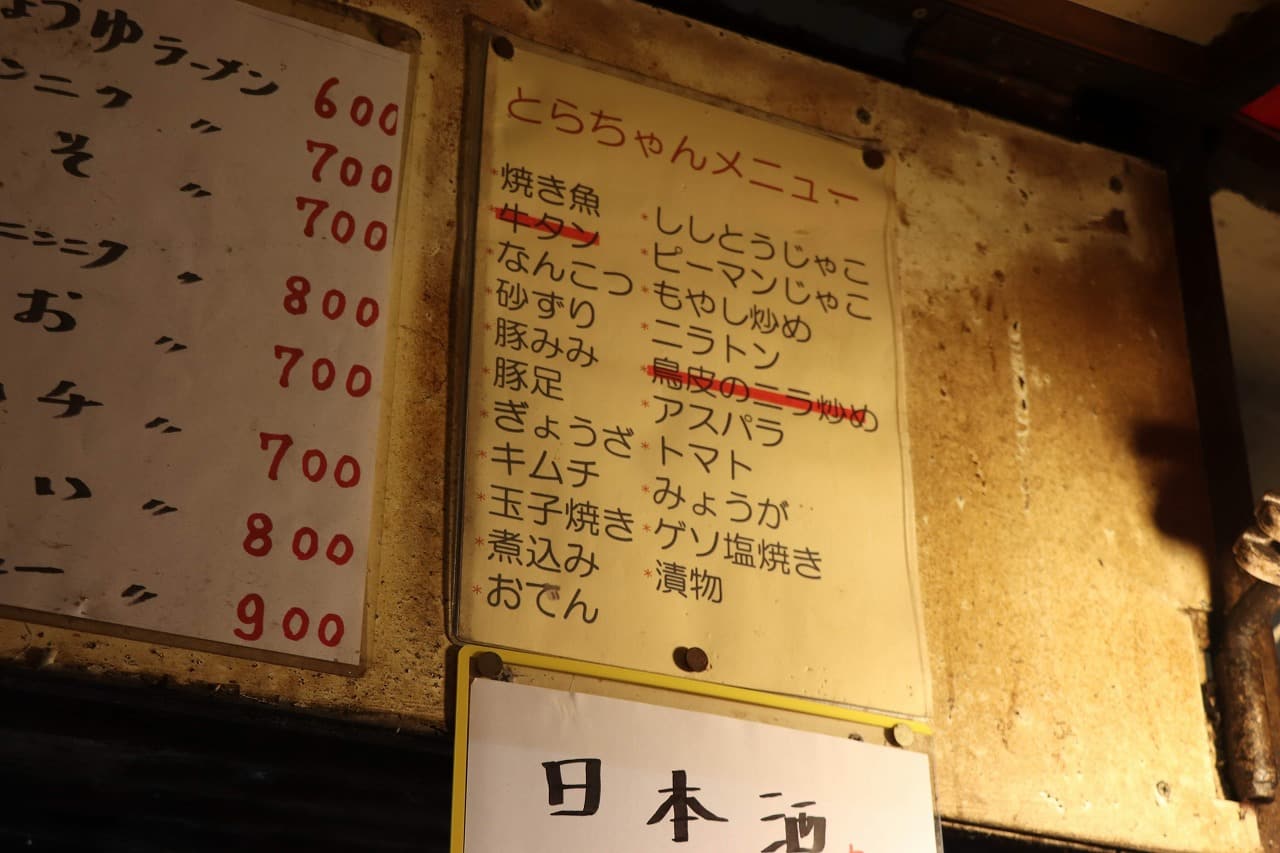 ょうゆラーメン 600
ンニク 〃 700
そ 〃 700
ニンニク 〃 800
お 〃 700
チ 〃 700
い 〃 800
ー 〃 900
とらちゃんメニュー
*焼き魚
*牛タン
*なんこつ
*砂ずり
*豚みみ
*豚足
*ぎょうざ
*キムチ
*玉子焼き
*煮込み
*おでん
*ししとうじゃこ
*ピーマンじゃこ
*もやし炒め
*ニラトン
*鳥皮のニラ炒め
*アスパラ
*トマト
*みょうが
*ゲソ塩焼き
*漬物
日本酒